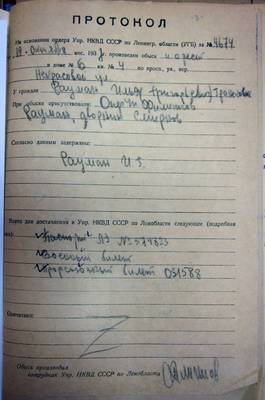 ПРОТОКОЛ
На основании ордера Упр. НКВД СССР по Ленингр. области (УГБ) за №
мес. 193 г. произведен обыск и арест
в доме № 6 кв. № 4 по просп., ул., пер.
Некрасовой ул.
У граждан Рауман
При обыске присутствовали:
Рауман, дворник Смирнов
Согласно данным задержаны:
Рауман И. Г.
Взято для доставления в Упр. НКВД СССР по Ленобласти следующее (подробная
Паспорт ЛЭ №
Военный билет
Профсоюзный билет 051588
Опечатано:
Обыск производил
сотрудник Упр. НКВД СССР по Ленобласти